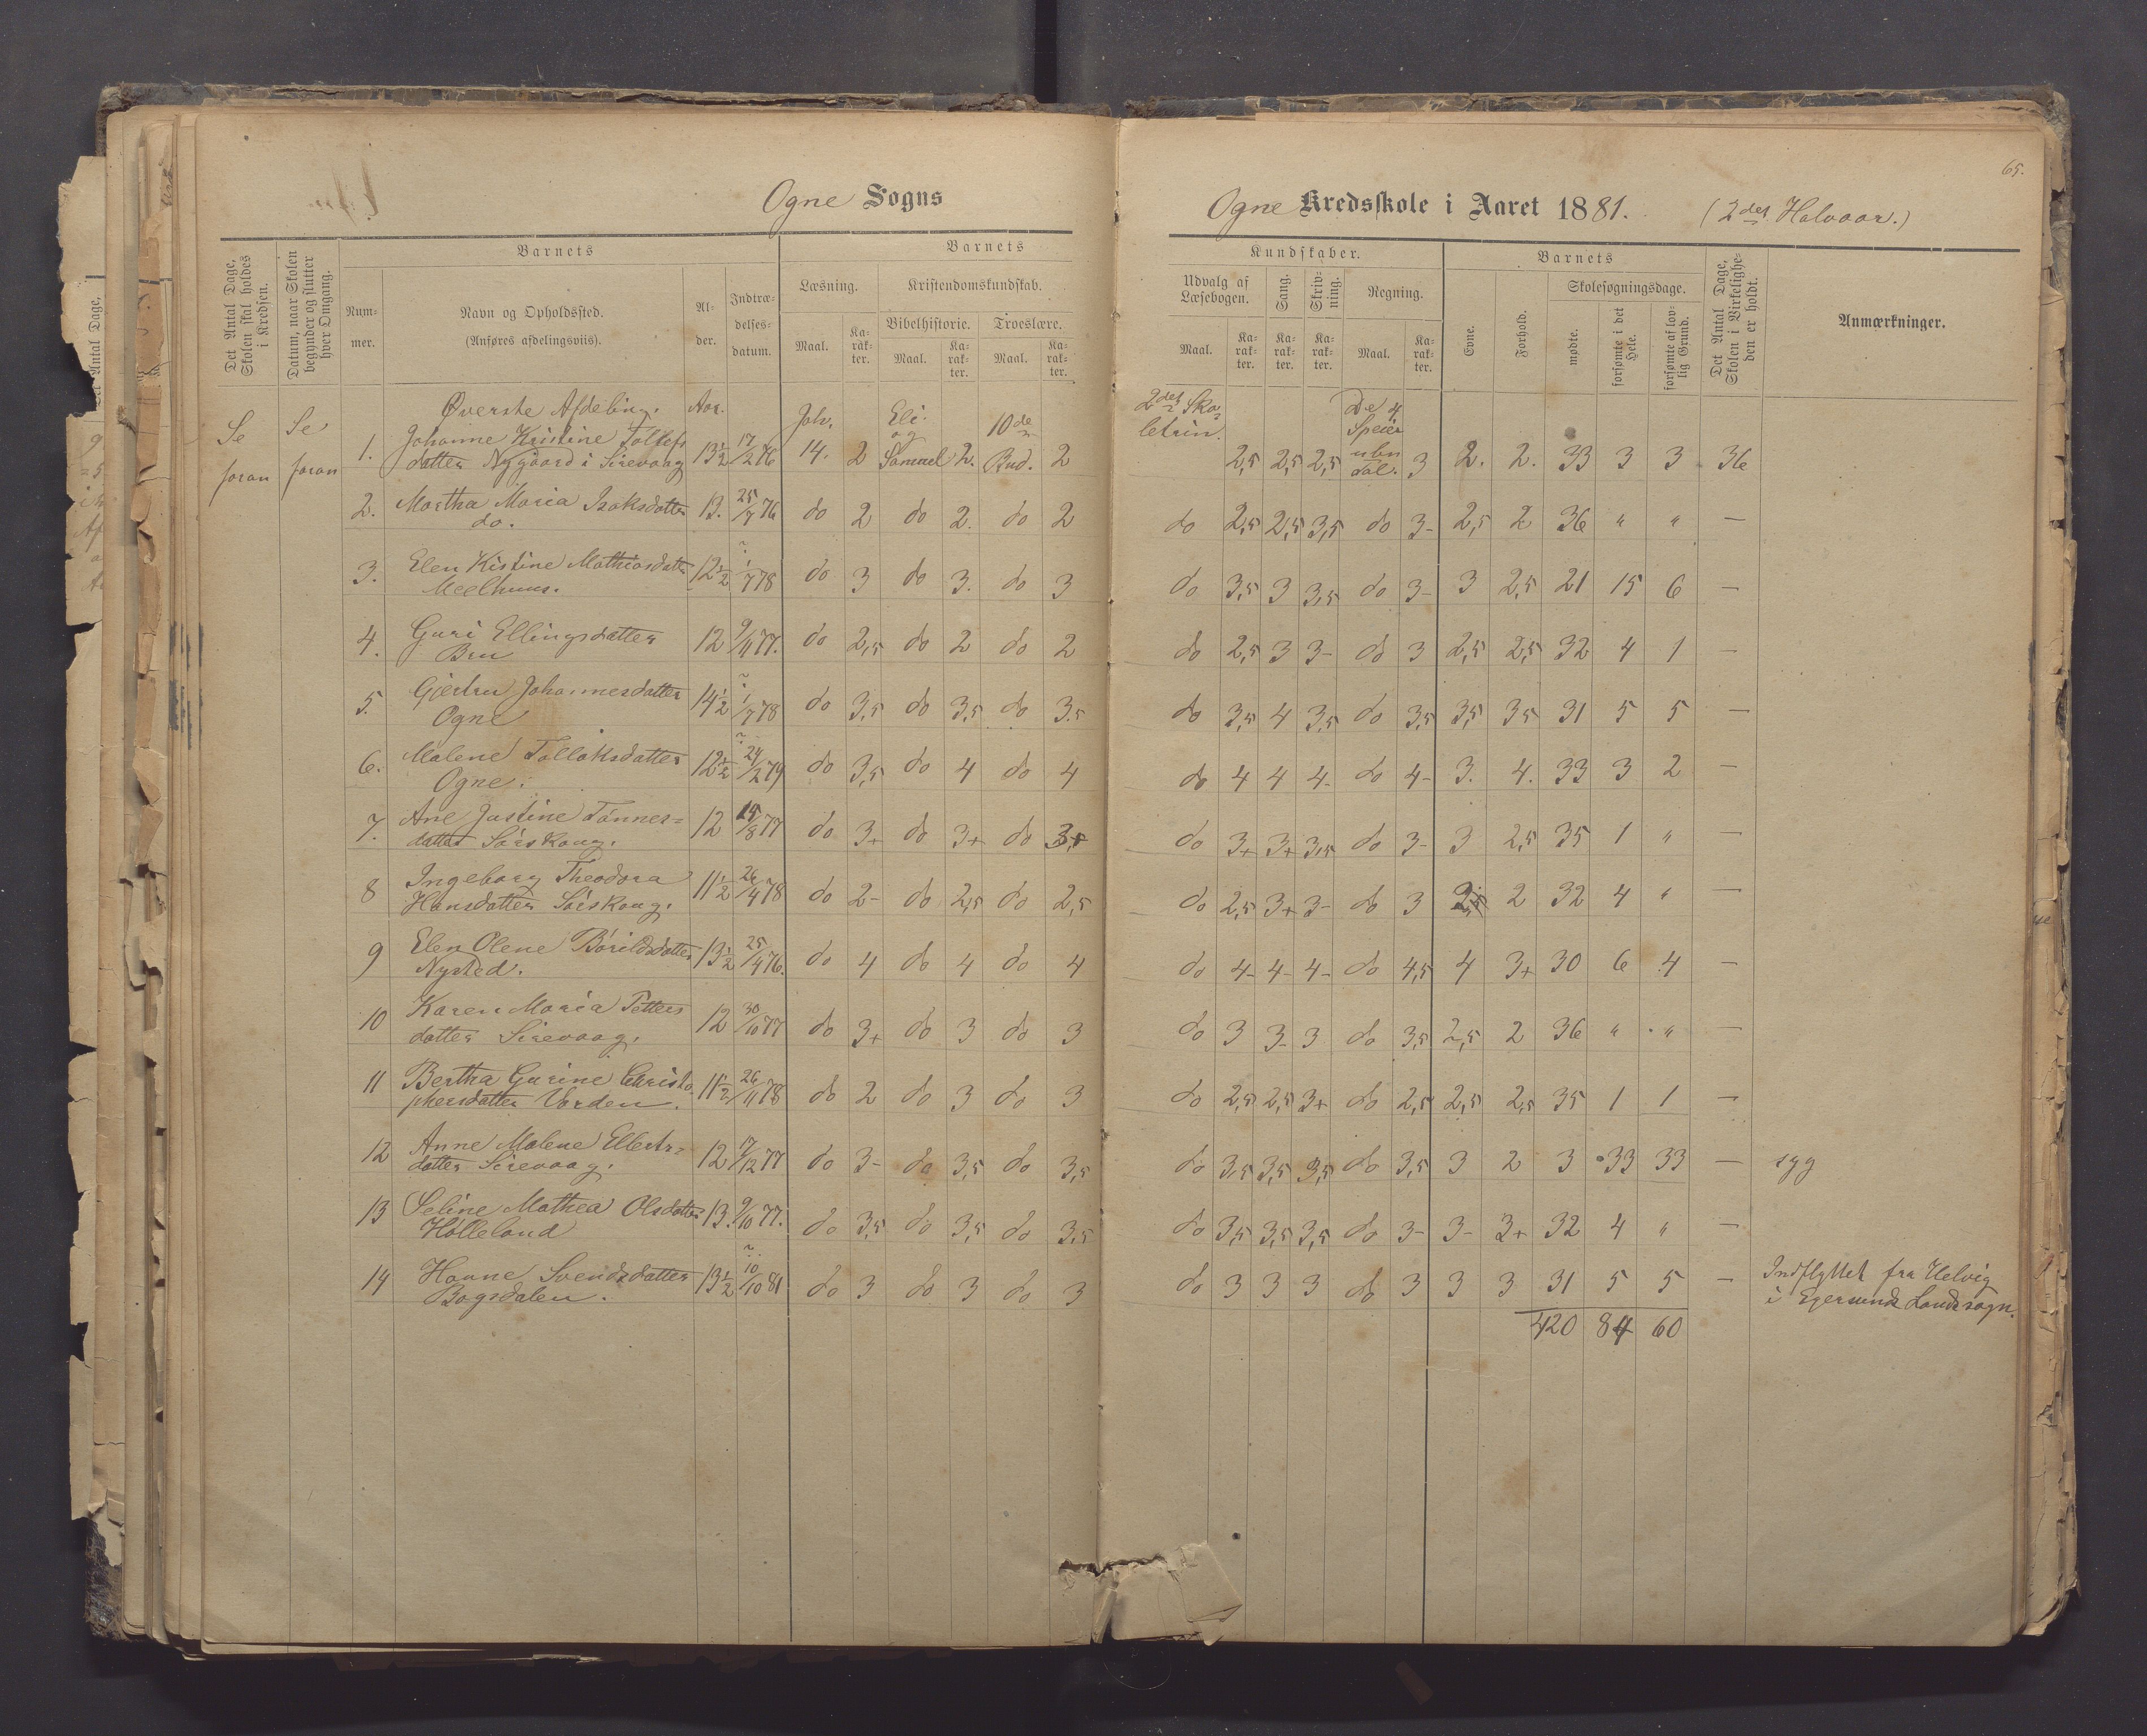 65.
Ogne Sogns
Ogne Kredsskole i Aaret 1881. (2det Halvaar.)
Det Antal Dage, Skolen skal holdes i Kredsen.
Datum, naar Skolen begynder og slutter hver Omgang.
Barnets
Num-mer.
Navn og Opholdssted.
(Anføres afdelingsviis).
Al-der.
Indtræ-delses-datum.
Barnets
Læsning.
Maal.
Ka-rak-ter.
Kristendomskundskab.
Bibelhistorie.
Maal.
Ka-rak-ter.
Troeslære.
Maal.
Ka-rak-ter.
Kundskaber.
Udvalg af Læsebogen.
Maal.
Ka-rak-ter.
Sang.
Ka-rak-ter.
Skriv-ning.
Ka-rak-ter.
Regning.
Maal.
Ka-rak-ter.
Barnets
Evne.
Forhold.
Skolesøgningsdage.
mødte.
forsømte i det Hele.
forsømte af lov-lig Grund.
Det Antal Dage, Skolen i Virkelighe-den er holdt.
Anmærkninger.
Se foran
Se foran
Øverste Afdeling. Aar.
1. Johanne Kristine Tollefs
datter Nygaard i Sirevaag 13½ 17/2 76 Joh. 14. 2 Eli og Samuel 2. 10de Bud. 2 2det Sko-letrin. 2,5 2,5 2,5 De 4 Speier ubn Tal. 3 2. 2. 33 3 3 36
2. Martha Maria Isaksdatter
do. 13. 25/7 76 do 2 do 2. do 2 do 2,5 2,5 3,5 do 3- 2,5 2 36 " " —
3. Elen Kistine Mathiasdatter
Meelhuus. 12½ 1/7 78 do 3 do 3. do 3 do 3,5 3 3,5 do 3- 3 2,5 21 15 6 —
4. Guri Ellingsdatter
Bru 12 9/11 77. do 2,5 do 2 do 2 do 2,5 3 3- do 3 2,5 2,5 32 4 1 —
5. Gjertru Johannesdatter
Ogne 14½ 1/7 78 do 3,5 do 3,5 do 3,5 do 3,5 4 3,5 do 3,5 3,5 3,5 31 5 5 —
6. Malene Tollaksdatter
Ogne. 12½ 24/2 79 do 3,5 do 4 do 4 do 4 4 4- do 4- 3. 4. 33 3 2 —
7. Ane Justine Tönnes=
datter Sörskoug. 12 15/8 77 do 3+ do 3+ do 3+ do 3+ 3+ 3,5 do 3- 3 2,5 35 1 " —
8 Ingeborg Theodora
Hansdatter Sörskoug. 11½ 26/4 78 do 2- do 2,5 do 2,5 do 2,5 3+ 3- do 3 2,5 2 32 4 " —
9 Elen Olene Börildsdatter
Nysted. 13½ 25/4 76. do 4 do 4 do 4 do 4- 4- 4- do 4,5 4 3+ 30 6 4 —
10 Karen Maria Petters
datter Sirevaag. 12 30/10 77 do 3+ do 3 do 3 do 3 3- 3 do 3,5 2,5 2 36 " " —
11 Bertha Gurine Christo-
phersdatter Varden. 11½ 26/11 78 do 2 do 3 do 3 do 2,5 2,5 3+ do 2,5 2,5 2,5 35 1 1 —
12 Anne Malene Ellerts=
datter Sirevaag. 12 17/12 77 do 3- do 3,5 do 3,5 do 3,5 3,5 3,5 do 3,5 3 2 3 33 33 — syg
13 Seline Mathea Olsdatter
Holleland 13. 9/10 77. do 3,5 do 3,5 do 3,5 do 3,5 3,5 3,5 do 3- 3- 3+ 32 4 " —
14 Hanne Svendsdatter
Bogsdalen. 13½ 10/10 81 do 3 do 3 do 3 do 3 3 3 do 3 3 3 31 5 5 — Indflyttet fra Helvig
i Egersunds Landsogn.
420 84 60